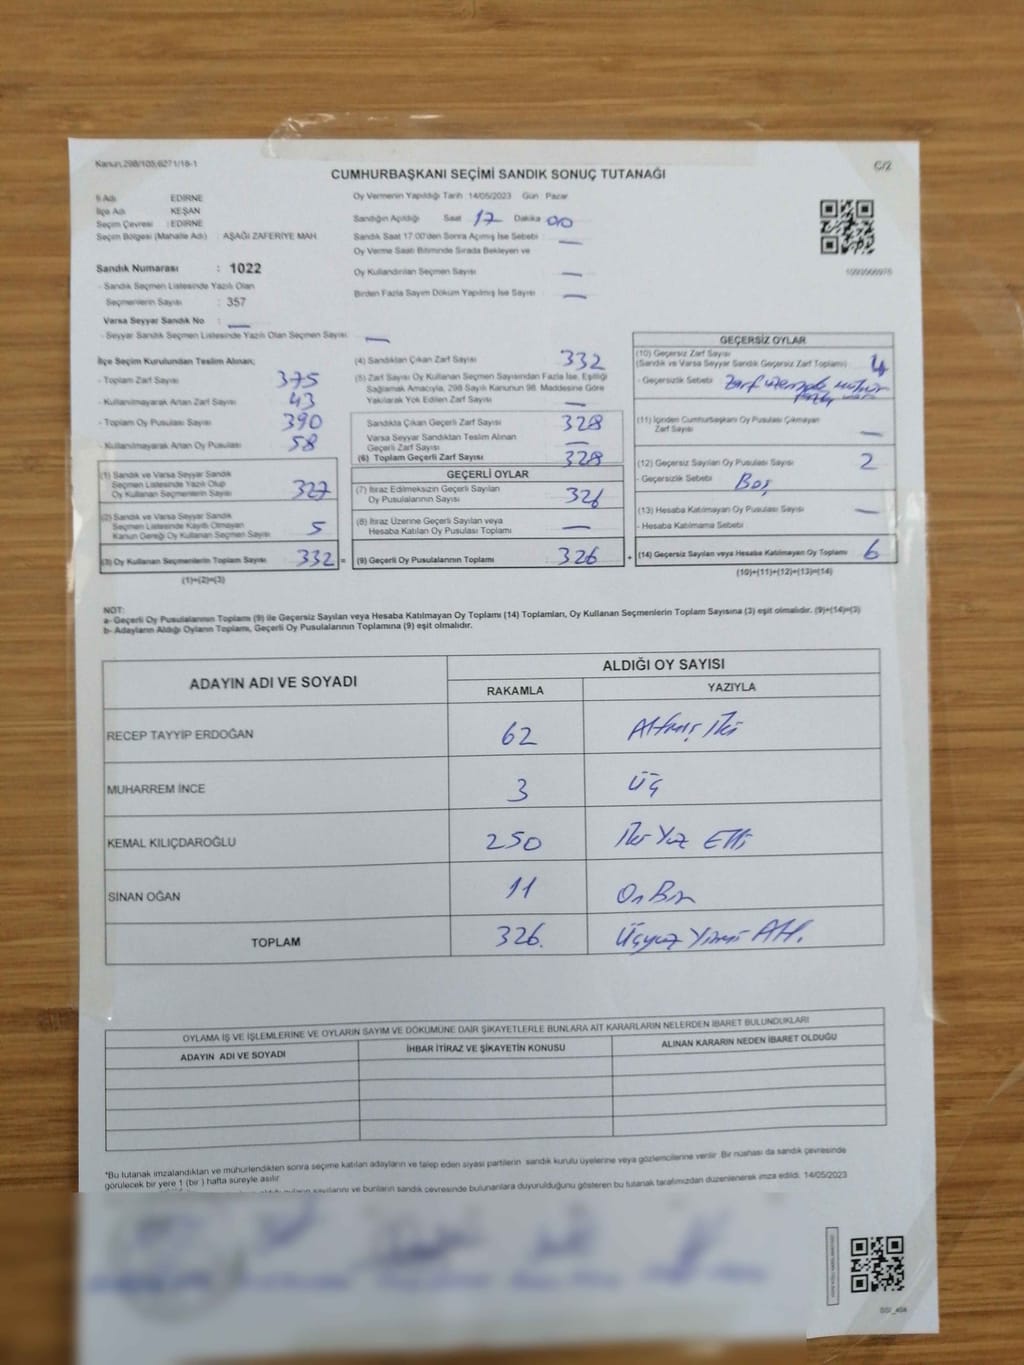 Kanun,298/105;6271/18-1
C/2
CUMHURBAŞKANI SEÇİMİ SANDIK SONUÇ TUTANAĞI
İl Adı EDİRNE
İlçe Adı KEŞAN
Seçim Çevresi : EDİRNE
Seçim Bölgesi (Mahalle Adı) : AŞAĞI ZAFERİYE MAH.
Sandık Numarası : 1022
- Sandık Seçmen Listesinde Yazılı Olan
Seçmenlerin Sayısı : 357
Varsa Seyyar Sandık No : —
- Seyyar Sandık Seçmen Listesinde Yazılı Olan Seçmen Sayısı: —
Oy Vermenin Yapıldığı Tarih 14/05/2023 Gün : Pazar
Sandığın Açıldığı Saat 17 Dakika 00
Sandık Saat 17:00'den Sonra Açımış İse Sebebi : —
Oy Verme Saati Bitiminde Sırada Bekleyen ve
Oy Kullandırılan Seçmen Sayısı —
Birden Fazla Sayım Döküm Yapılmış İse Sayısı —
İlçe Seçim Kurulundan Teslim Alınan;
- Toplam Zarf Sayısı 375
- Kullanılmayarak Artan Zarf Sayısı 43
- Toplam Oy Pusulası Sayısı 390
- Kullanılmayarak Artan Oy Pusulası 58
(1) Sandık ve Varsa Seyyar Sandık
Seçmen Listesinde Yazılı Olup
Oy Kullanan Seçmenlerin Sayısı 327
(2) Sandık ve Varsa Seyyar Sandık
Seçmen Listesinde Kayıtlı Olmayan
Kanun Gereği Oy Kullanan Seçmen Sayısı 5
(3) Oy Kullanan Seçmenlerin Toplam Sayısı 332 =
(1)+(2)=(3)
(4) Sandıktan Çıkan Zarf Sayısı 332
(5) Zarf Sayısı Oy Kullanan Seçmen Sayısından Fazla İse, Eşitliği
Sağlamak Amacıyla, 298 Sayılı Kanunun 98. Maddesine Göre
Yakılarak Yok Edilen Zarf Sayısı —
Sandıkta Çıkan Geçerli Zarf Sayısı 328
Varsa Seyyar Sandıktan Teslim Alınan
Geçerli Zarf Sayısı —
(6) Toplam Geçerli Zarf Sayısı 328
GEÇERLİ OYLAR
(7) İtiraz Edilmeksizin Geçerli Sayılan
Oy Pusulalarının Sayısı 326
(8) İtiraz Üzerine Geçerli Sayılan veya
Hesaba Katılan Oy Pusulası Toplamı —
(9) Geçerli Oy Pusulalarının Toplamı 326 +
GEÇERSİZ OYLAR
(10) Geçersiz Zarf Sayısı
(Sandık ve Varsa Seyyar Sandık Geçersiz Zarf Toplamı) 4
- Geçersizlik Sebebi : Zarf üzerinde
(11) İçinden Cumhurbaşkanı Oy Pusulası Çıkmayan
Zarf Sayısı —
(12) Geçersiz Sayılan Oy Pusulası Sayısı 2
- Geçersizlik Sebebi Boş
(13) Hesaba Katılmayan Oy Pusulası Sayısı —
- Hesaba Katılmama Sebebi :
(14) Geçersiz Sayılan veya Hesaba Katılmayan Oy Toplamı 6
(10)+(11)+(12)+(13)=(14)
NOT:
a- Geçerli Oy Pusulalarının Toplamı (9) ile Geçersiz Sayılan veya Hesaba Katılmayan Oy Toplamı (14) Toplamları, Oy Kullanan Seçmenlerin Toplam Sayısına (3) eşit olmalıdır. (9)+(14)=(3)
b- Adayların Aldığı Oyların Toplamı, Geçerli Oy Pusulalarının Toplamına (9) eşit olmalıdır.
ADAYIN ADI VE SOYADI ALDIĞI OY SAYISI
RAKAMLA YAZIYLA
RECEP TAYYİP ERDOĞAN 62 Altmış İki
MUHARREM İNCE 3 Üç
KEMAL KILIÇDAROĞLU 250 İki Yüz Elli
SİNAN OĞAN 11 On Bir
TOPLAM 326. Üçyüz Yirmi Altı.
OYLAMA İŞ VE İŞLEMLERİNE VE OYLARIN SAYIM VE DÖKÜMÜNE DAİR ŞİKAYETLERLE BUNLARA AİT KARARLARIN NELERDEN İBARET BULUNDUKLARI
ADAYIN ADI VE SOYADI İHBAR İTİRAZ VE ŞİKAYETİN KONUSU ALINAN KARARIN NEDEN İBARET OLDUĞU
*Bu tutanak imzalandıktan ve mühürlendikten sonra seçime katılan adayların ve talep eden siyasi partilerin sandık kurulu üyelerine veya gözlemcilerine verilir. Bir nüshası da sandık çevresinde
görülecek bir yere 1 (bir ) hafta süreyle asılır.
sayılarını ve bunların sandık çevresinde bulunanlara duyurulduğunu gösteren bu tutanak tarafımızdan düzenlenerek imza edildi. 14/05/2023